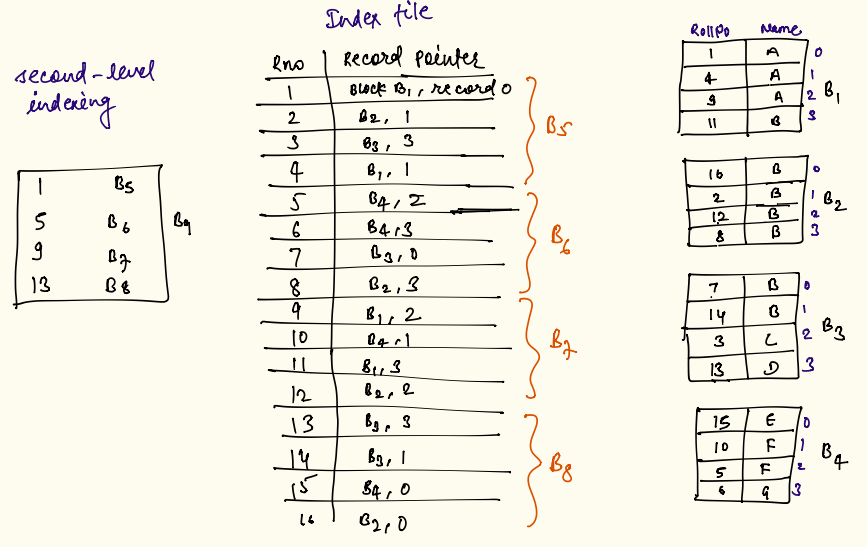 Index file
second-level
indexing
1 B5
5 B6
9 B7
13 B8
B9
Rno Record Pointer
1 Block B1, record 0
2 B2, 1
3 B3, 3
4 B1, 1
B5
5 B4, 2
6 B4, 3
7 B3, 0
8 B2, 3
B6
9 B1, 2
10 B4, 1
11 B1, 3
12 B2, 2
B7
13 B3, 3
14 B3, 1
15 B4, 0
16 B2, 0
B8
RollNo Name
1 A 0
4 A 1
9 A 2
11 B 3
B1
16 B 0
2 B 1
12 B 2
8 B 3
B2
7 B 0
14 B 1
3 C 2
13 D 3
B3
15 E 0
10 F 1
5 F 2
6 G 3
B4